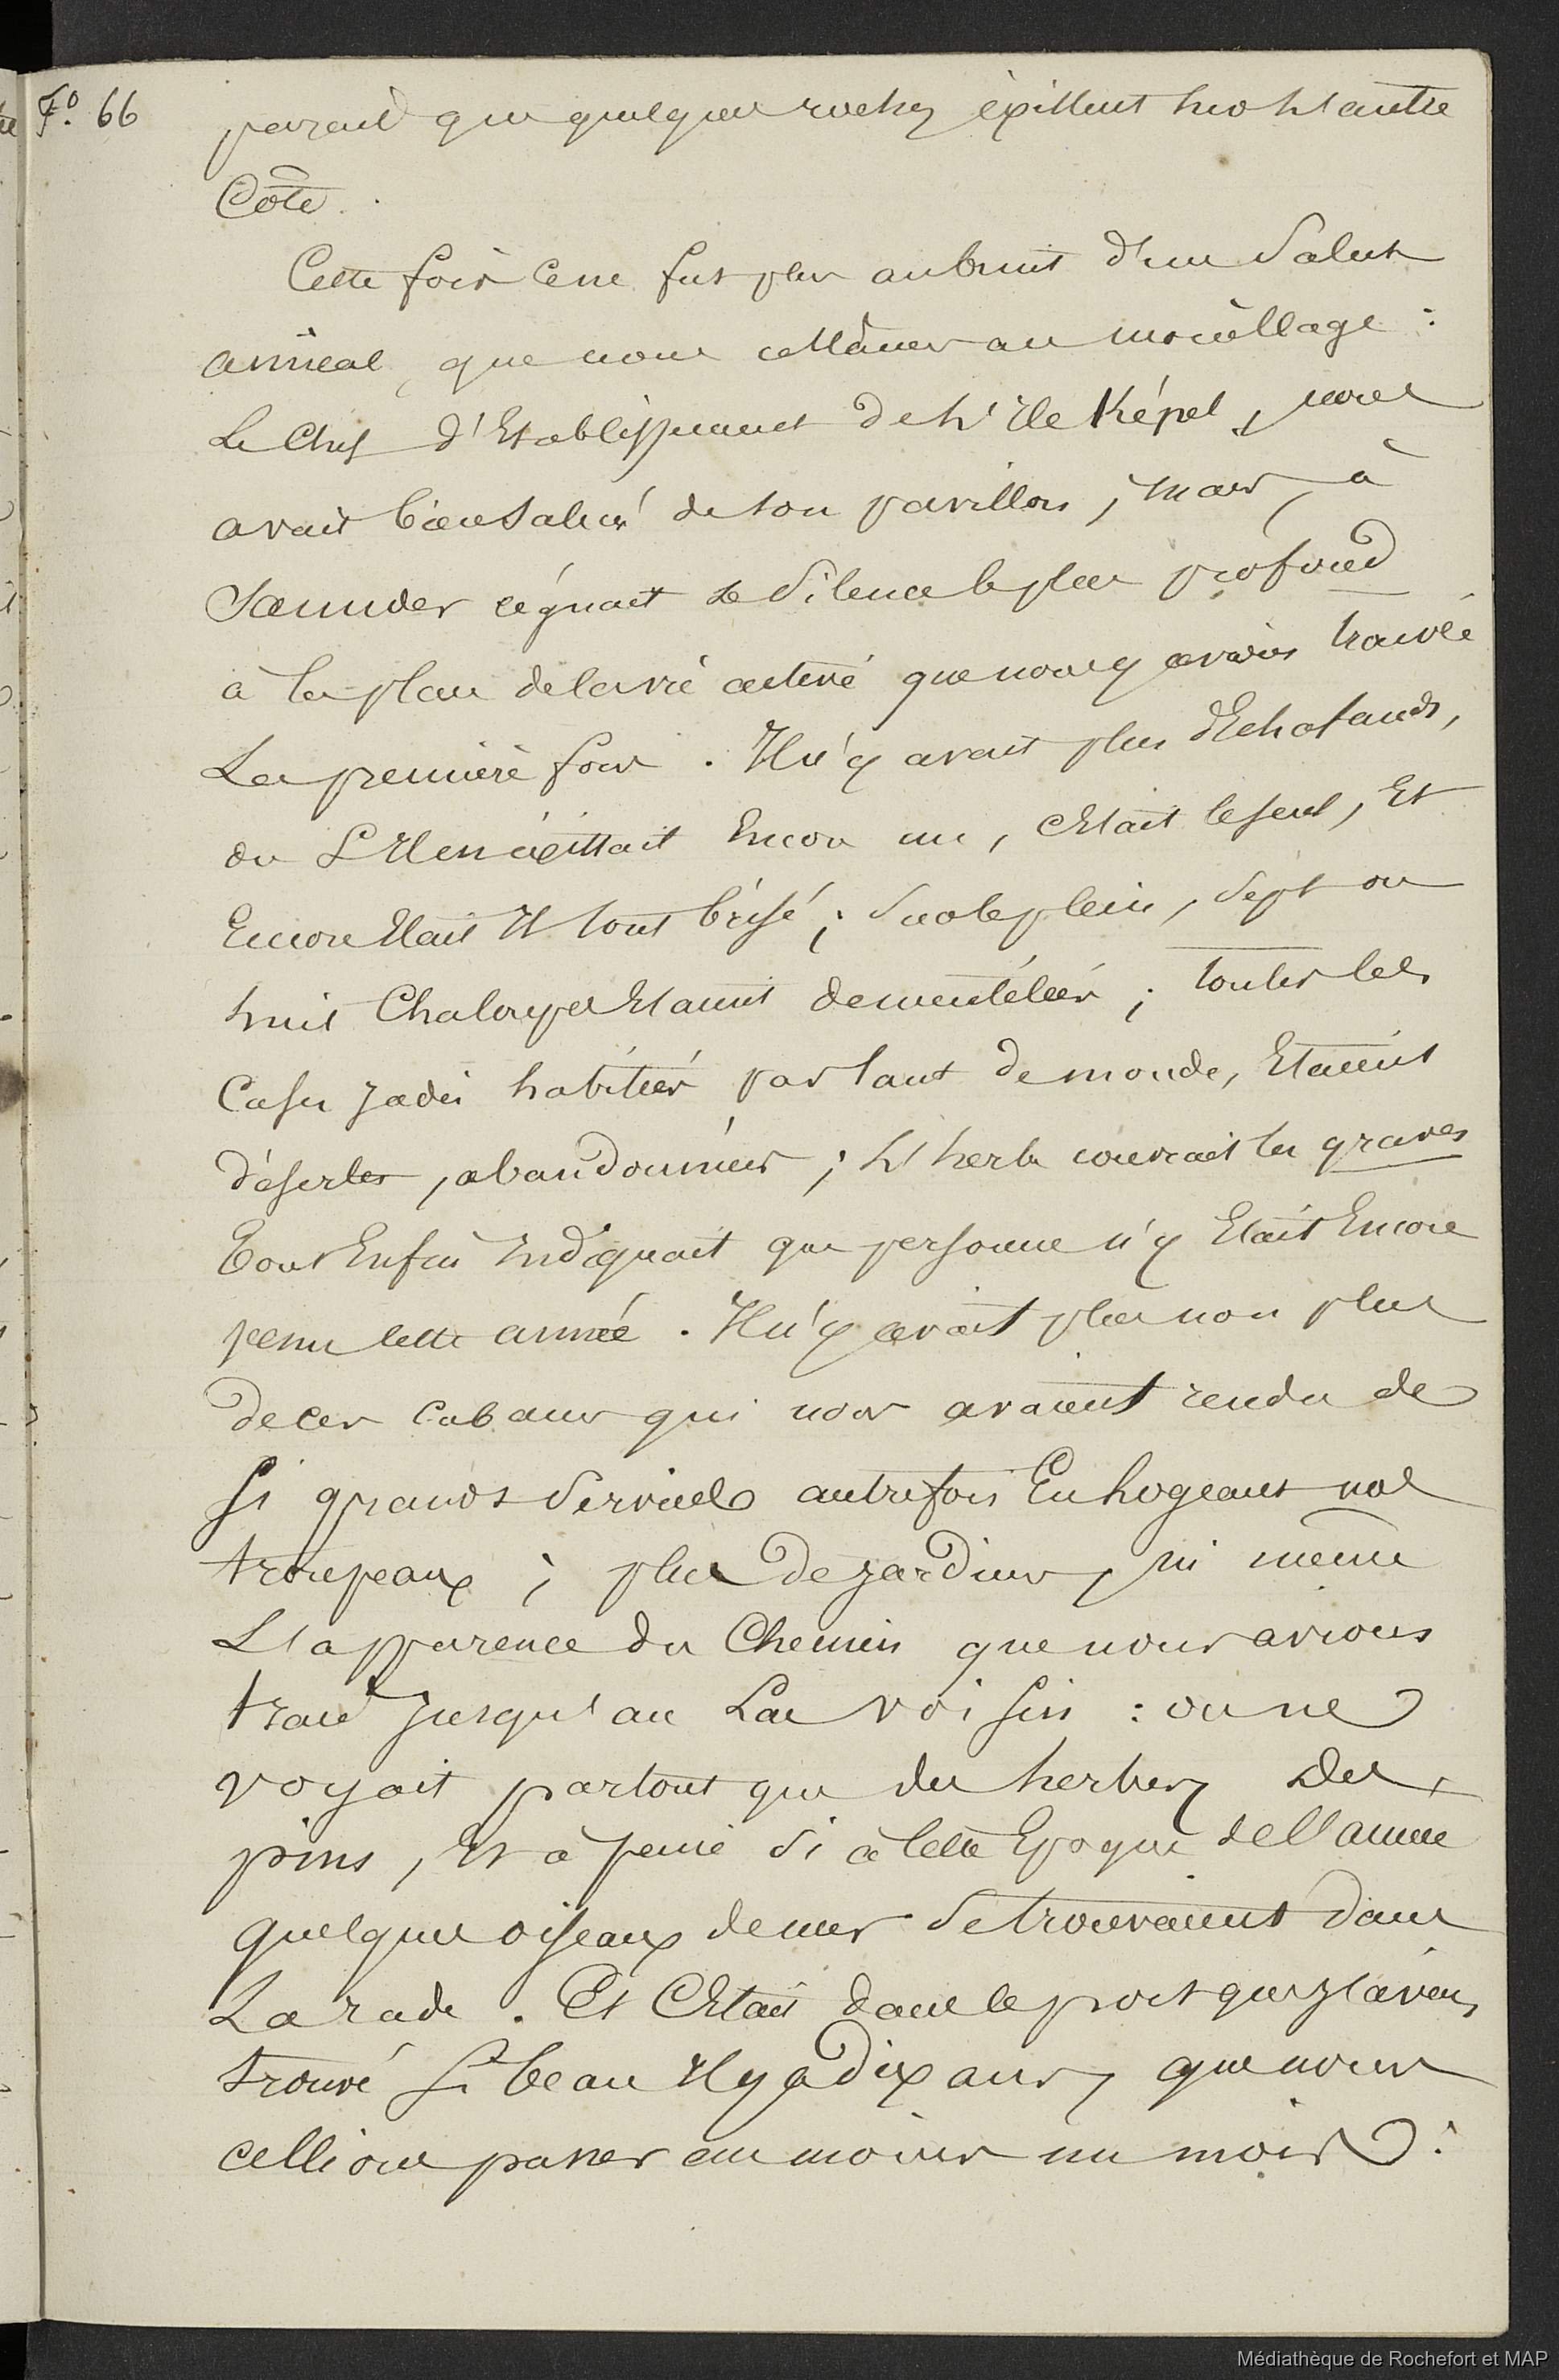 F.° 66
pareil que quelques rochers éxistent sur l'autre
Côté.
Cette fois ce ne fut plus au bruit d'un Salut
amical, que nous allâmes au mouillage :
Le Chef d'Etablissement de l'Ile Képel, nous
avait bien salué de son pavillon, mais, à
Saunder régnait le Silence le plus profond
à la place de la vie active que nous y avions trouvé
La première fois. Il n'y avait plus d'Echafauds,
ou S'Il en éxistait Encore un, c'Etait le seul, Et
Encore Etait Il tout brisé ; Sur le plein, Sept ou
huit Chaloupes Etaient démentelées ; toutes les
Cases jadis habitées par tant de monde, Etaient
désertes, abandonnées ; l'herbe couvrait les graves
Tout Enfin Indiquait que personne n'y Etait Encore
venu cette année. Il n'y avait plus non plus
de ces Cabanes qui nous avaient rendu de
si grands Services autrefois En logeant nos
troupeaux ; plus de jardins, ni même
L'apparence du Chemin que nous avions
tracé jusqu'au Lac voisin : on ne
voyait partout que des herbes, des
pins, Et à peine Si à cette Epoque de l'année
quelques oiseaux de mer Se trouvaient dans
La rade. Et C'Etait dans le port que j'avais
trouvé si beau Il y a dix ans, que nous
allions passer au moins un mois :
Médiathèque de Rochefort et MAP